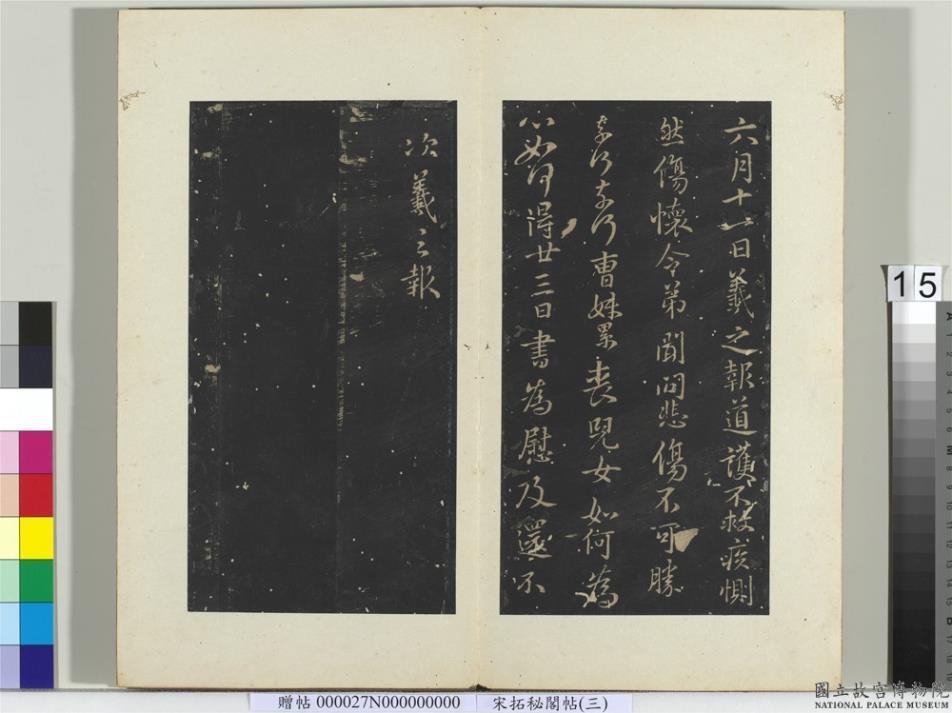 六月十一日羲之報道護不救疾惻
然傷懷令弟聞問悲傷不可勝
奈何奈何曹妹累喪兒女如何為
心如何得廿三日書為慰及還不
次羲之報
15
贈帖 000027N000000000
宋拓秘閣帖(三)
國立故宮博物院
NATIONAL PALACE MUSEUM